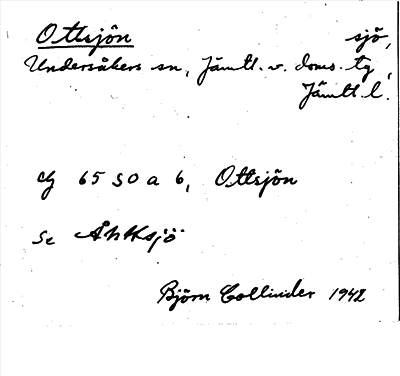 Ottsjön sjö,
Undersåkers sn, Jämtl. v. doms. tg,
Jämtl. l.
65 SO a 6, Ottsjön
Se Åhttsjö
Björn Collinder 1942